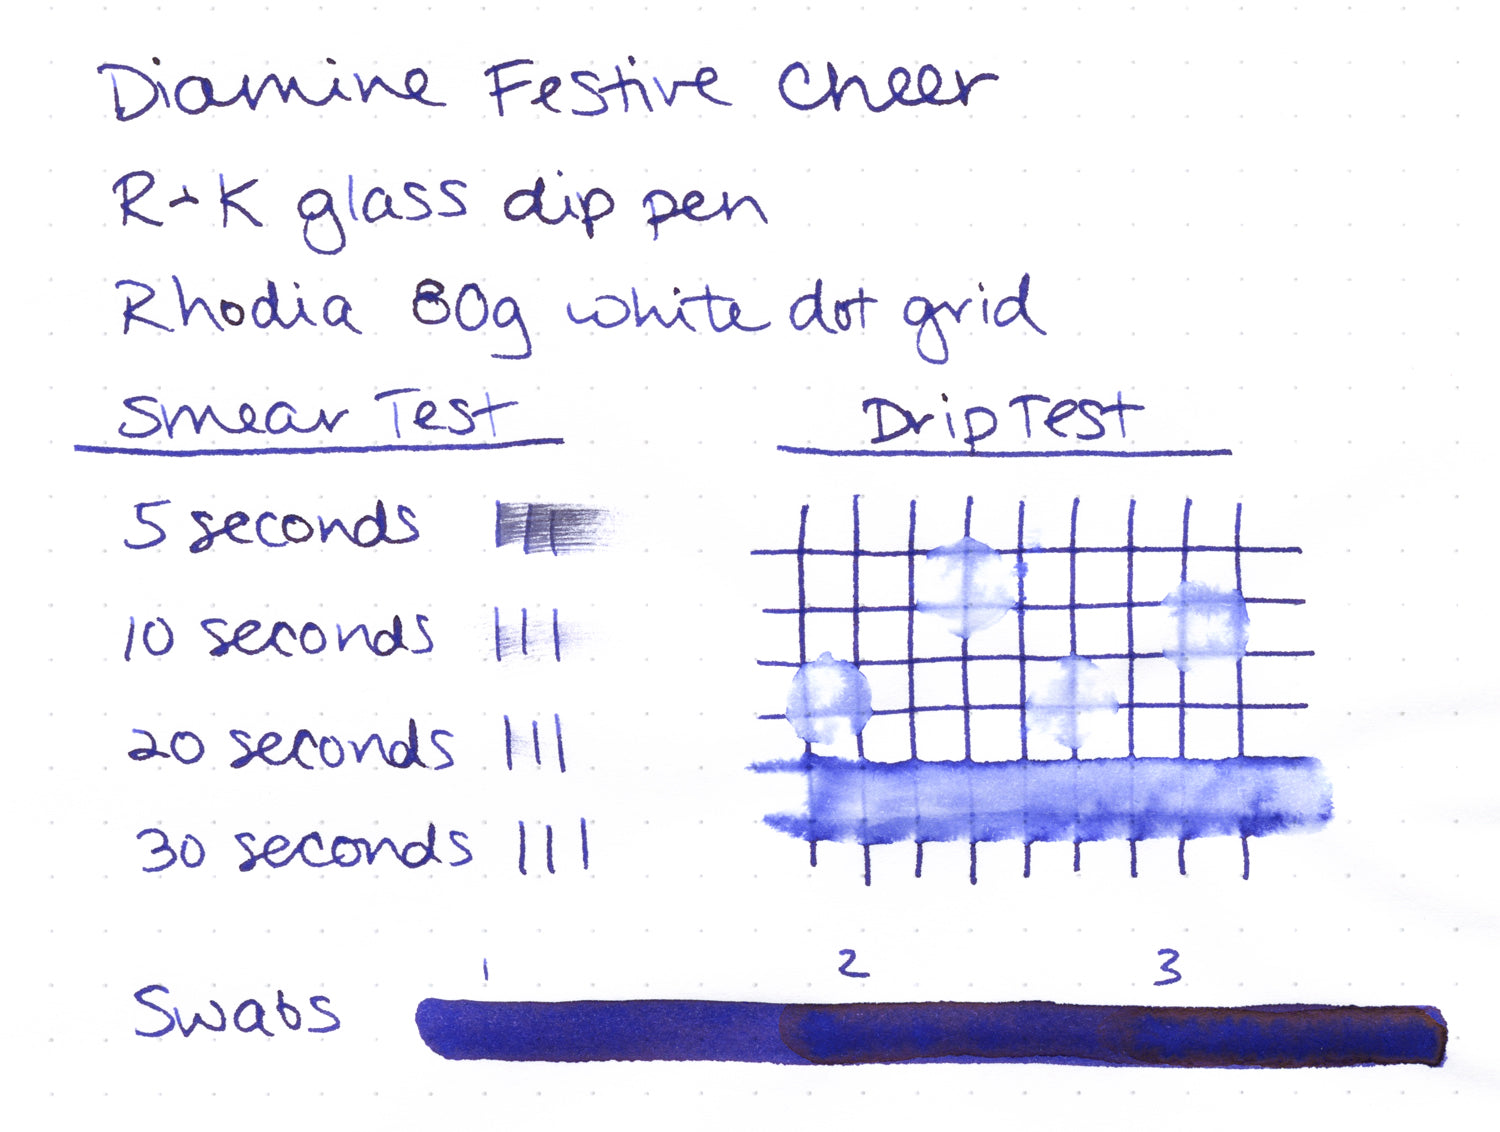 Diamine Festive Cheer
R+K glass dip pen
Rhodia 80g white dot grid
Smear Test
Drip Test
5 seconds
10 seconds
20 seconds
30 seconds
1 2 3
Swabs